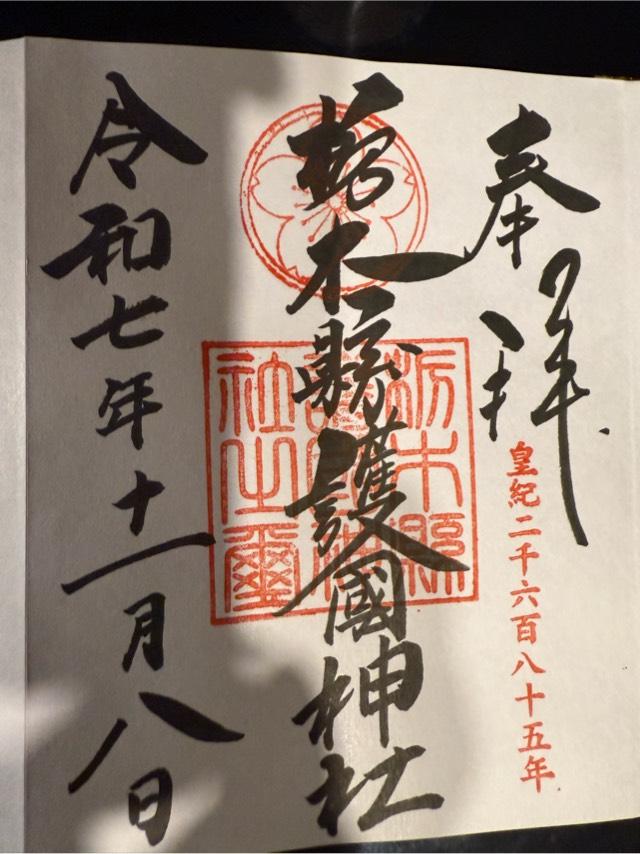 奉拝
皇紀二千六百八十五年
栃木縣護國神社
栃木縣護國神社之璽
令和七年十一月八日